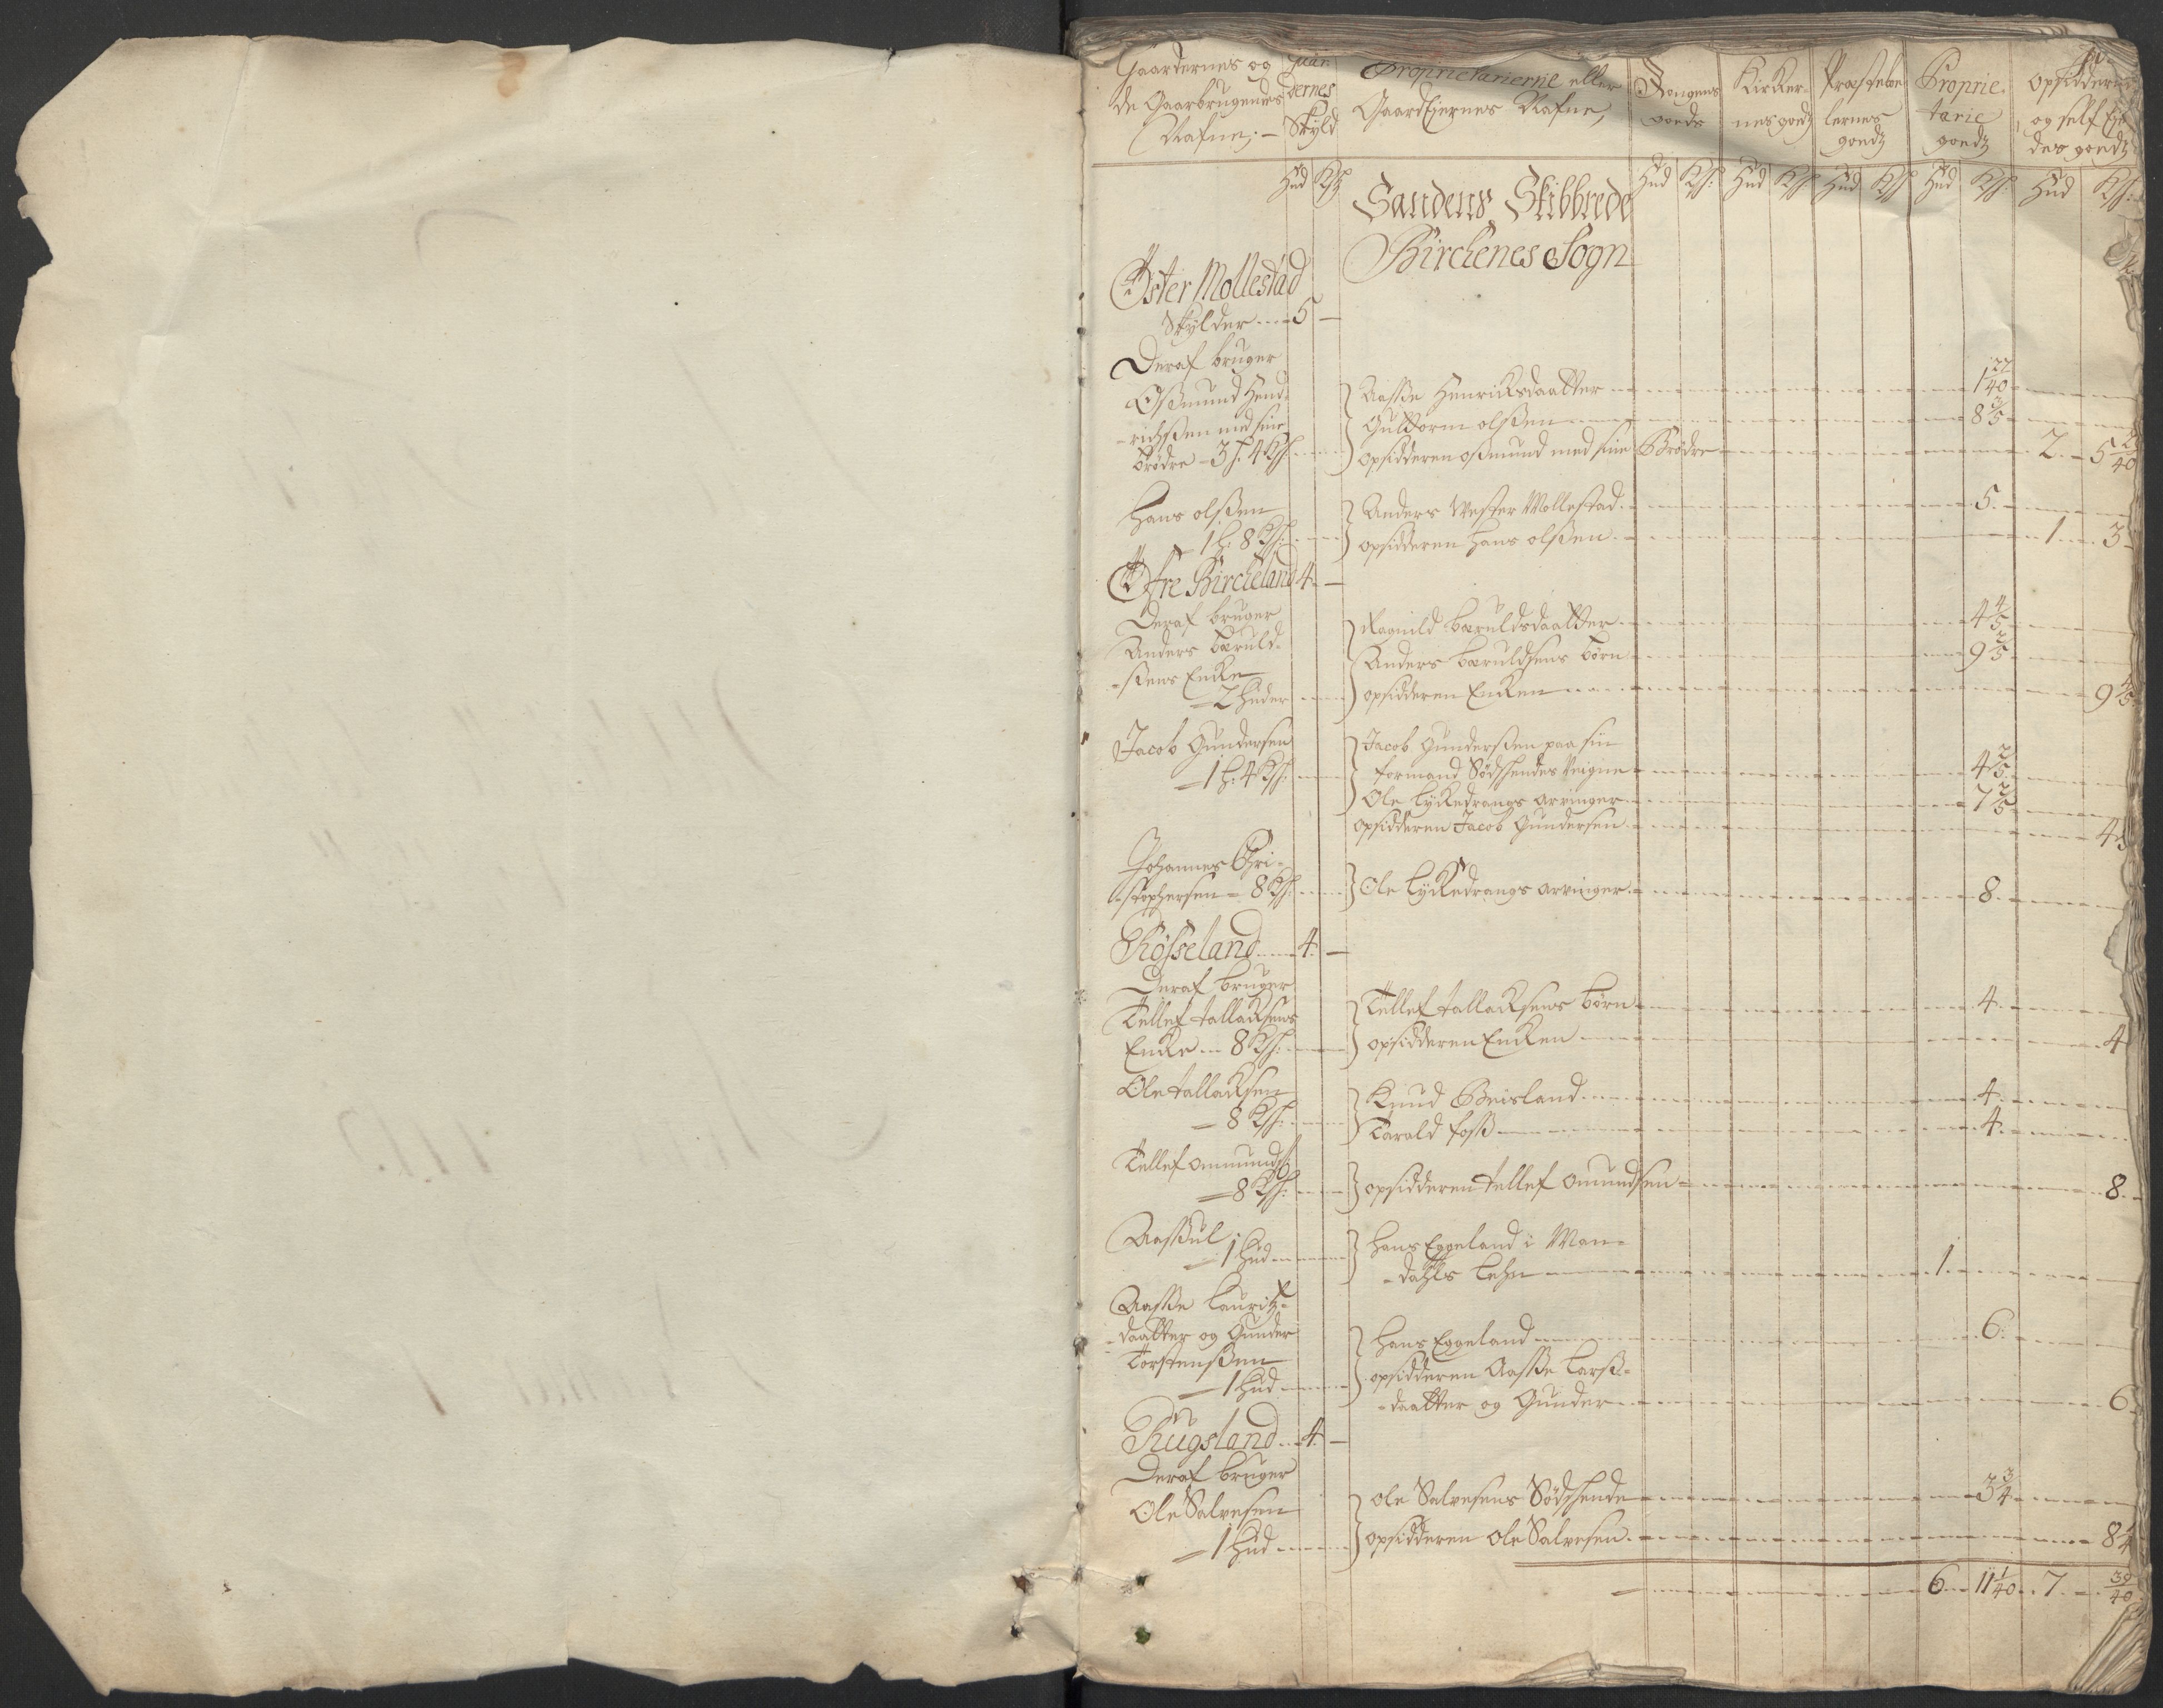 Gaardernes og
de Gaarbrugendes
Nafne. —
Gaar
dernes
Skyld
Proprietarierne eller
Gaard Eiernes Nafne,
Kongens
goeds
Kirker-
nes goedz
Præstebo
lernes
goedz
Proprie-
tarie
goedz
Opsiddernes
og self Eje
des goedz
Hud Ks: Hud Ks: Hud Ks: Hud Ks: Hud Ks: Hud Ks:
Sandens Skibbrede
Birchenes Sogn
Øster Mollestad
Skylder .... 5 —
Deraf bruger
Osmund Hend-
-richsen med sine
brødre - 3 h. 4 Ks:
Aasse Henricksdaatter 1 27/40
Guttorm olsen 8 3/5
opsidderen osmund med sine Brødre 2 - 5 2/40
Hans olsen
1 h: 8 Ks:
Anders Wester Mollestad 5.
opsidderen Hans olsen 1 3
Øfre Bircheland 4 —
Deraf bruger
Anders bæruld-
-sens Encke
- 2 huder
Ragnild bæruldsdaatter 4 4/5
Anders bæruldsens børn 9 2/5
opsidderen Encken 9 4/5
Jacob Gundersen
- 1 h: 4 Ks:
Jacob Gundersen paa sin
formand Sødschendes Veigne 4 2/5
Ole Lyckedrangs arvinger 7 2/5
opsidderen Jacob Gundersen 4
Johannes Chri-
-stophersen - 8 Ks:
Ole Lyckedrangs arvinger 8.
Røsseland .... 4 —
Deraf bruger
Tellef tallacksens
Encke ... 8 Ks:
Tellef tallacksens børn 4.
opsidderen Encken 4
Ole tallacksen
- 8 Ks:
Knud Beisland 4.
Tarald foss 4.
Tellef ommunds:
- 8 Ks:
opsidderen tellef omundsen 8
Aassul
- 1 hud
hans Eggeland i Man-
-dahls Lehn 1.
Aasse Lauritz-
-daatter og Gunder
Torstensen
- 1 hud
hans Eggeland 6.
opsidderen Aasse Lars-
-daatter og Gunder 6
Rugsland .. 4 —
Deraf bruger
Ole Salvesen
- 1 hud
ole Salvesens Sødschende 3 3/4
opsidderen ole Salvesen 8 1/4
6 11 1/40 7 39/40